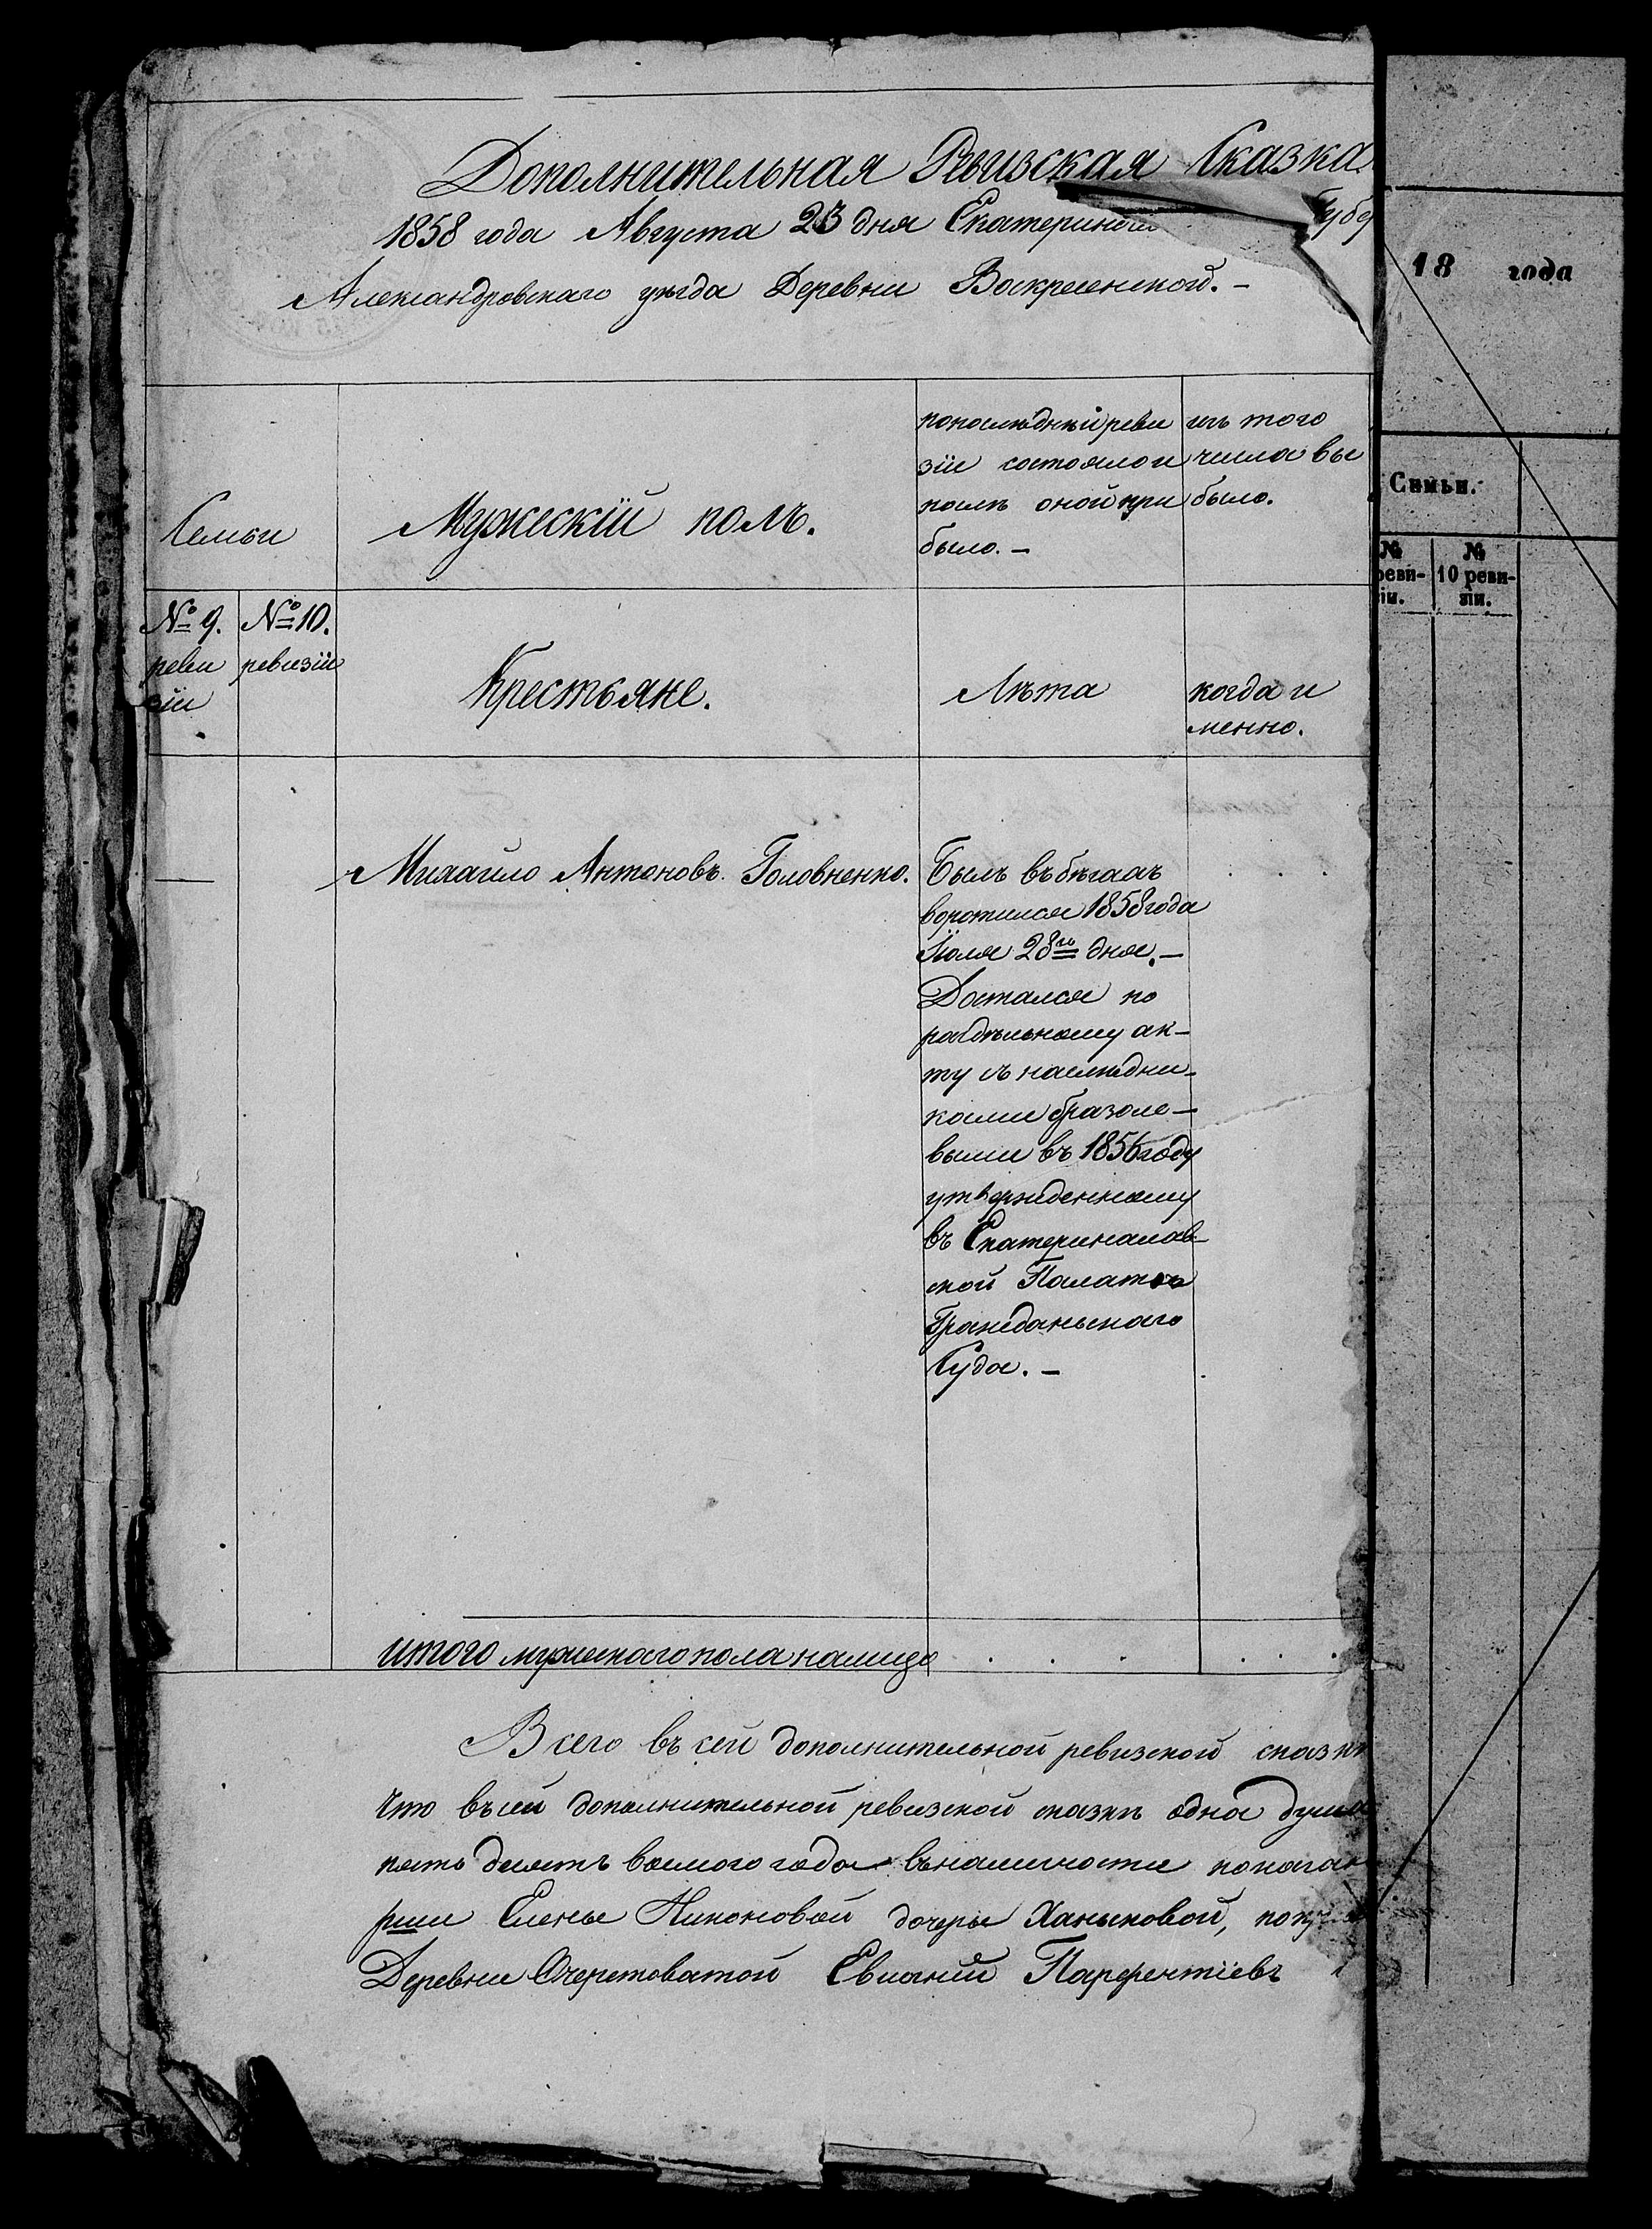 Дополнительная Ревизская Сказка
1858 года Августа 23 дня Екатеринос Губер
Александровскаго уѣзда Деревни Воскресенской. –
Семьи
Мужескій полъ.
попослѣдней реви
зіи состояло и
послѣ оной при
было. –
изъ того
числа вы
было.
№ 9.
реви
сіи
№ 10.
ревизіи
Крестьяне.
Лѣта
когда и
менно.
Михайло Антоновъ Головненко.
Былъ въ бѣгахъ
воротился 1858 года
Іюля 28го дня. –
Достался по
раздѣльному ак-
ту съ наслѣдни-
ками Бразоле-
выми въ 1856 году
утвержденному
въ Екатеринослав-
ской Палатѣ
Гражданьскаго
Суда. –
итого мужескаго пола налицо . . .
Всего въ сей дополнительной ревизской сказкѣ
Что въ сей дополнительной ревизской сказкѣ одна душа
пять десятъ восмого года въ наличности
Еленѣ Никоновой дочеры Ханыковой,
Деревни Очеретоватой Евсиgній Парфентіевъ
18 года
Семьи.
№
реви-
зіи.
№
10 реви-
зіи.